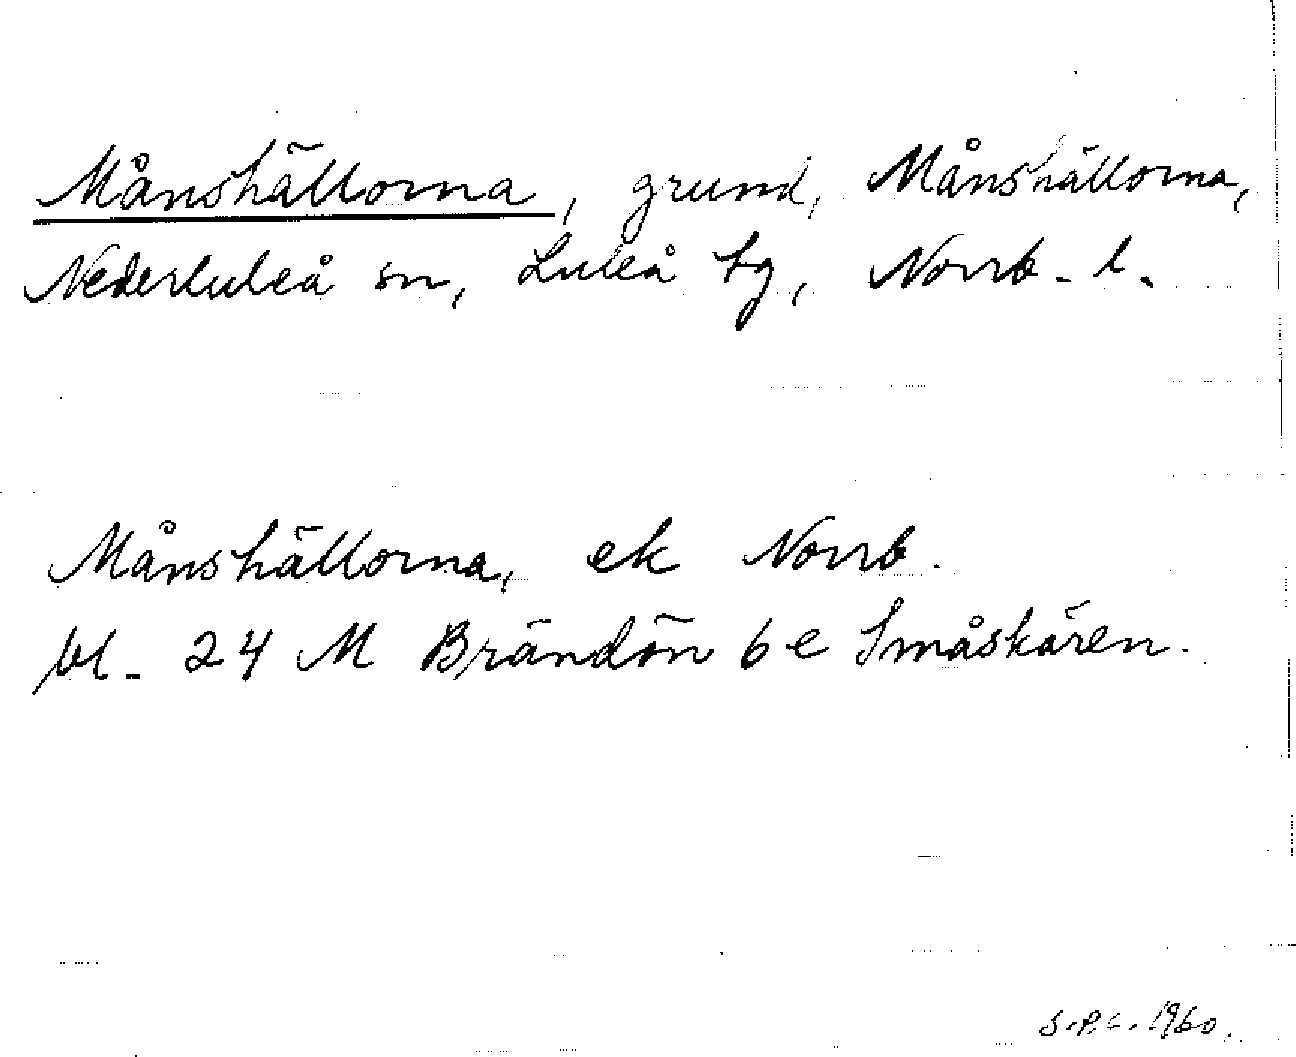 Månshällorna, grund, Månshällorna,
Nederluleå sn, Luleå tg, Norrb. l.
Månshällorna, ek Norrb.
bl. 24 M Brändön 6 e Småskären.
S.P.C. 1960.